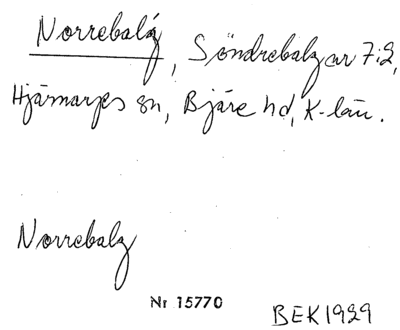 Norrebalg
Söndrebalg av 7:2,
Hjärnarps sn, Bjäre hd, K-län.
Norrebalg
Nr 15770
BEK 1929